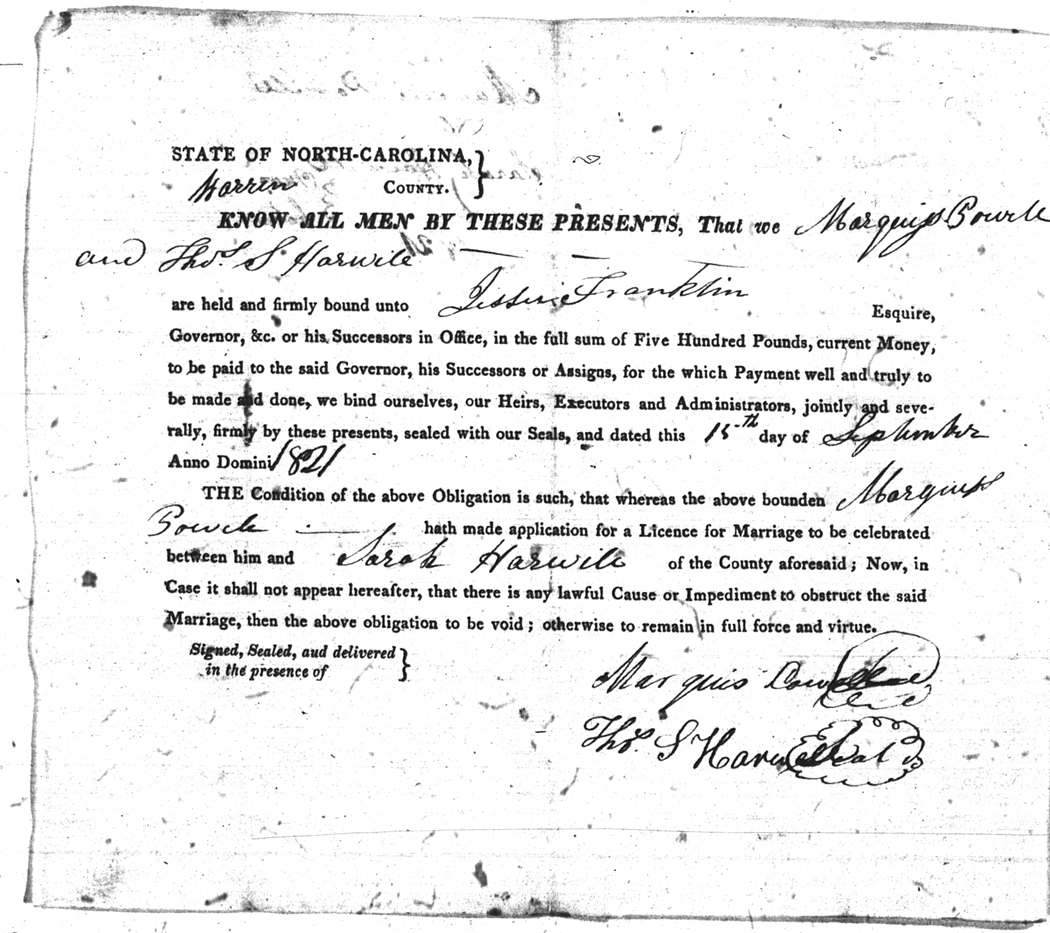 STATE OF NORTH-CAROLINA,
Warren COUNTY.
KNOW ALL MEN BY THESE PRESENTS, That we Marquis Powell
and Thos. S Harwell
are held and firmly bound unto Jesse Franklin Esquire,
Governor, &c. or his Successors in Office, in the full sum of Five Hundred Pounds, current Money,
to be paid to the said Governor, his Successors or Assigns, for the which Payment well and truly to
be made and done, we bind ourselves, our Heirs, Executors and Administrators, jointly and seve-
rally, firmly by these presents, sealed with our Seals, and dated this 15th day of September
Anno Domini 1821
THE Condition of the above Obligation is such, that whereas the above bounden Marquis
Powell hath made application for a Licence for Marriage to be celebrated
between him and Sarah Harwell of the County aforesaid; Now, in
Case it shall not appear hereafter, that there is any lawful Cause or Impediment to obstruct the said
Marriage, then the above obligation to be void; otherwise to remain in full force and virtue.
Signed, Sealed, and delivered
in the presence of
Marquis Powell
Thos. S Harwell Seal